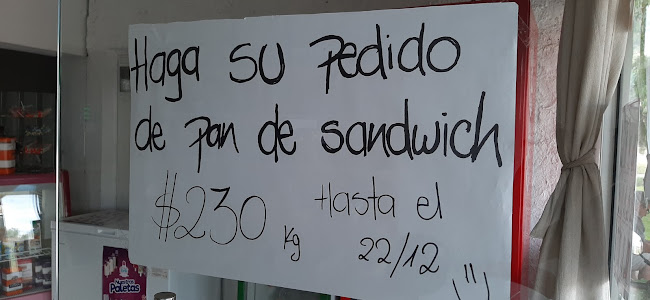 Haga su pedido
de pan de sandwich
$230 Kg
Hasta el
22/12
Paletas